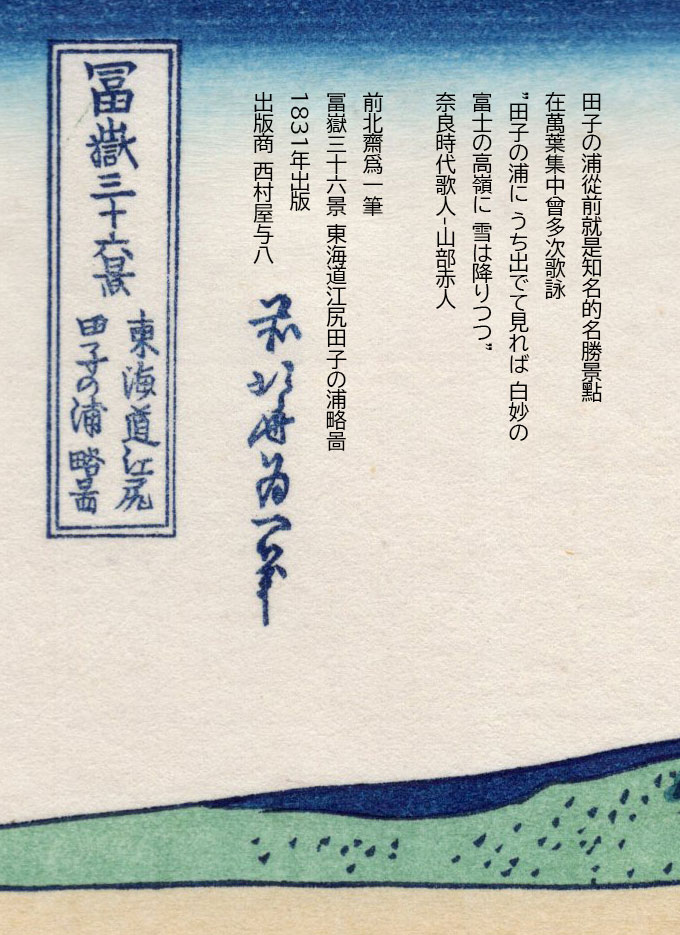 田子の浦從前就是知名的名勝景點
在萬葉集中曾多次歌詠
”田子の浦に うち出でて見れば 白妙の
富士の高嶺に 雪は降りつつ”
奈良時代歌人-山部赤人
前北齋爲一筆
冨嶽三十六景 東海道江尻田子の浦略啚
1831年出版
出版商 西村屋与八
前北斎為一筆
冨嶽三十六景
東海道江尻
田子の浦略啚